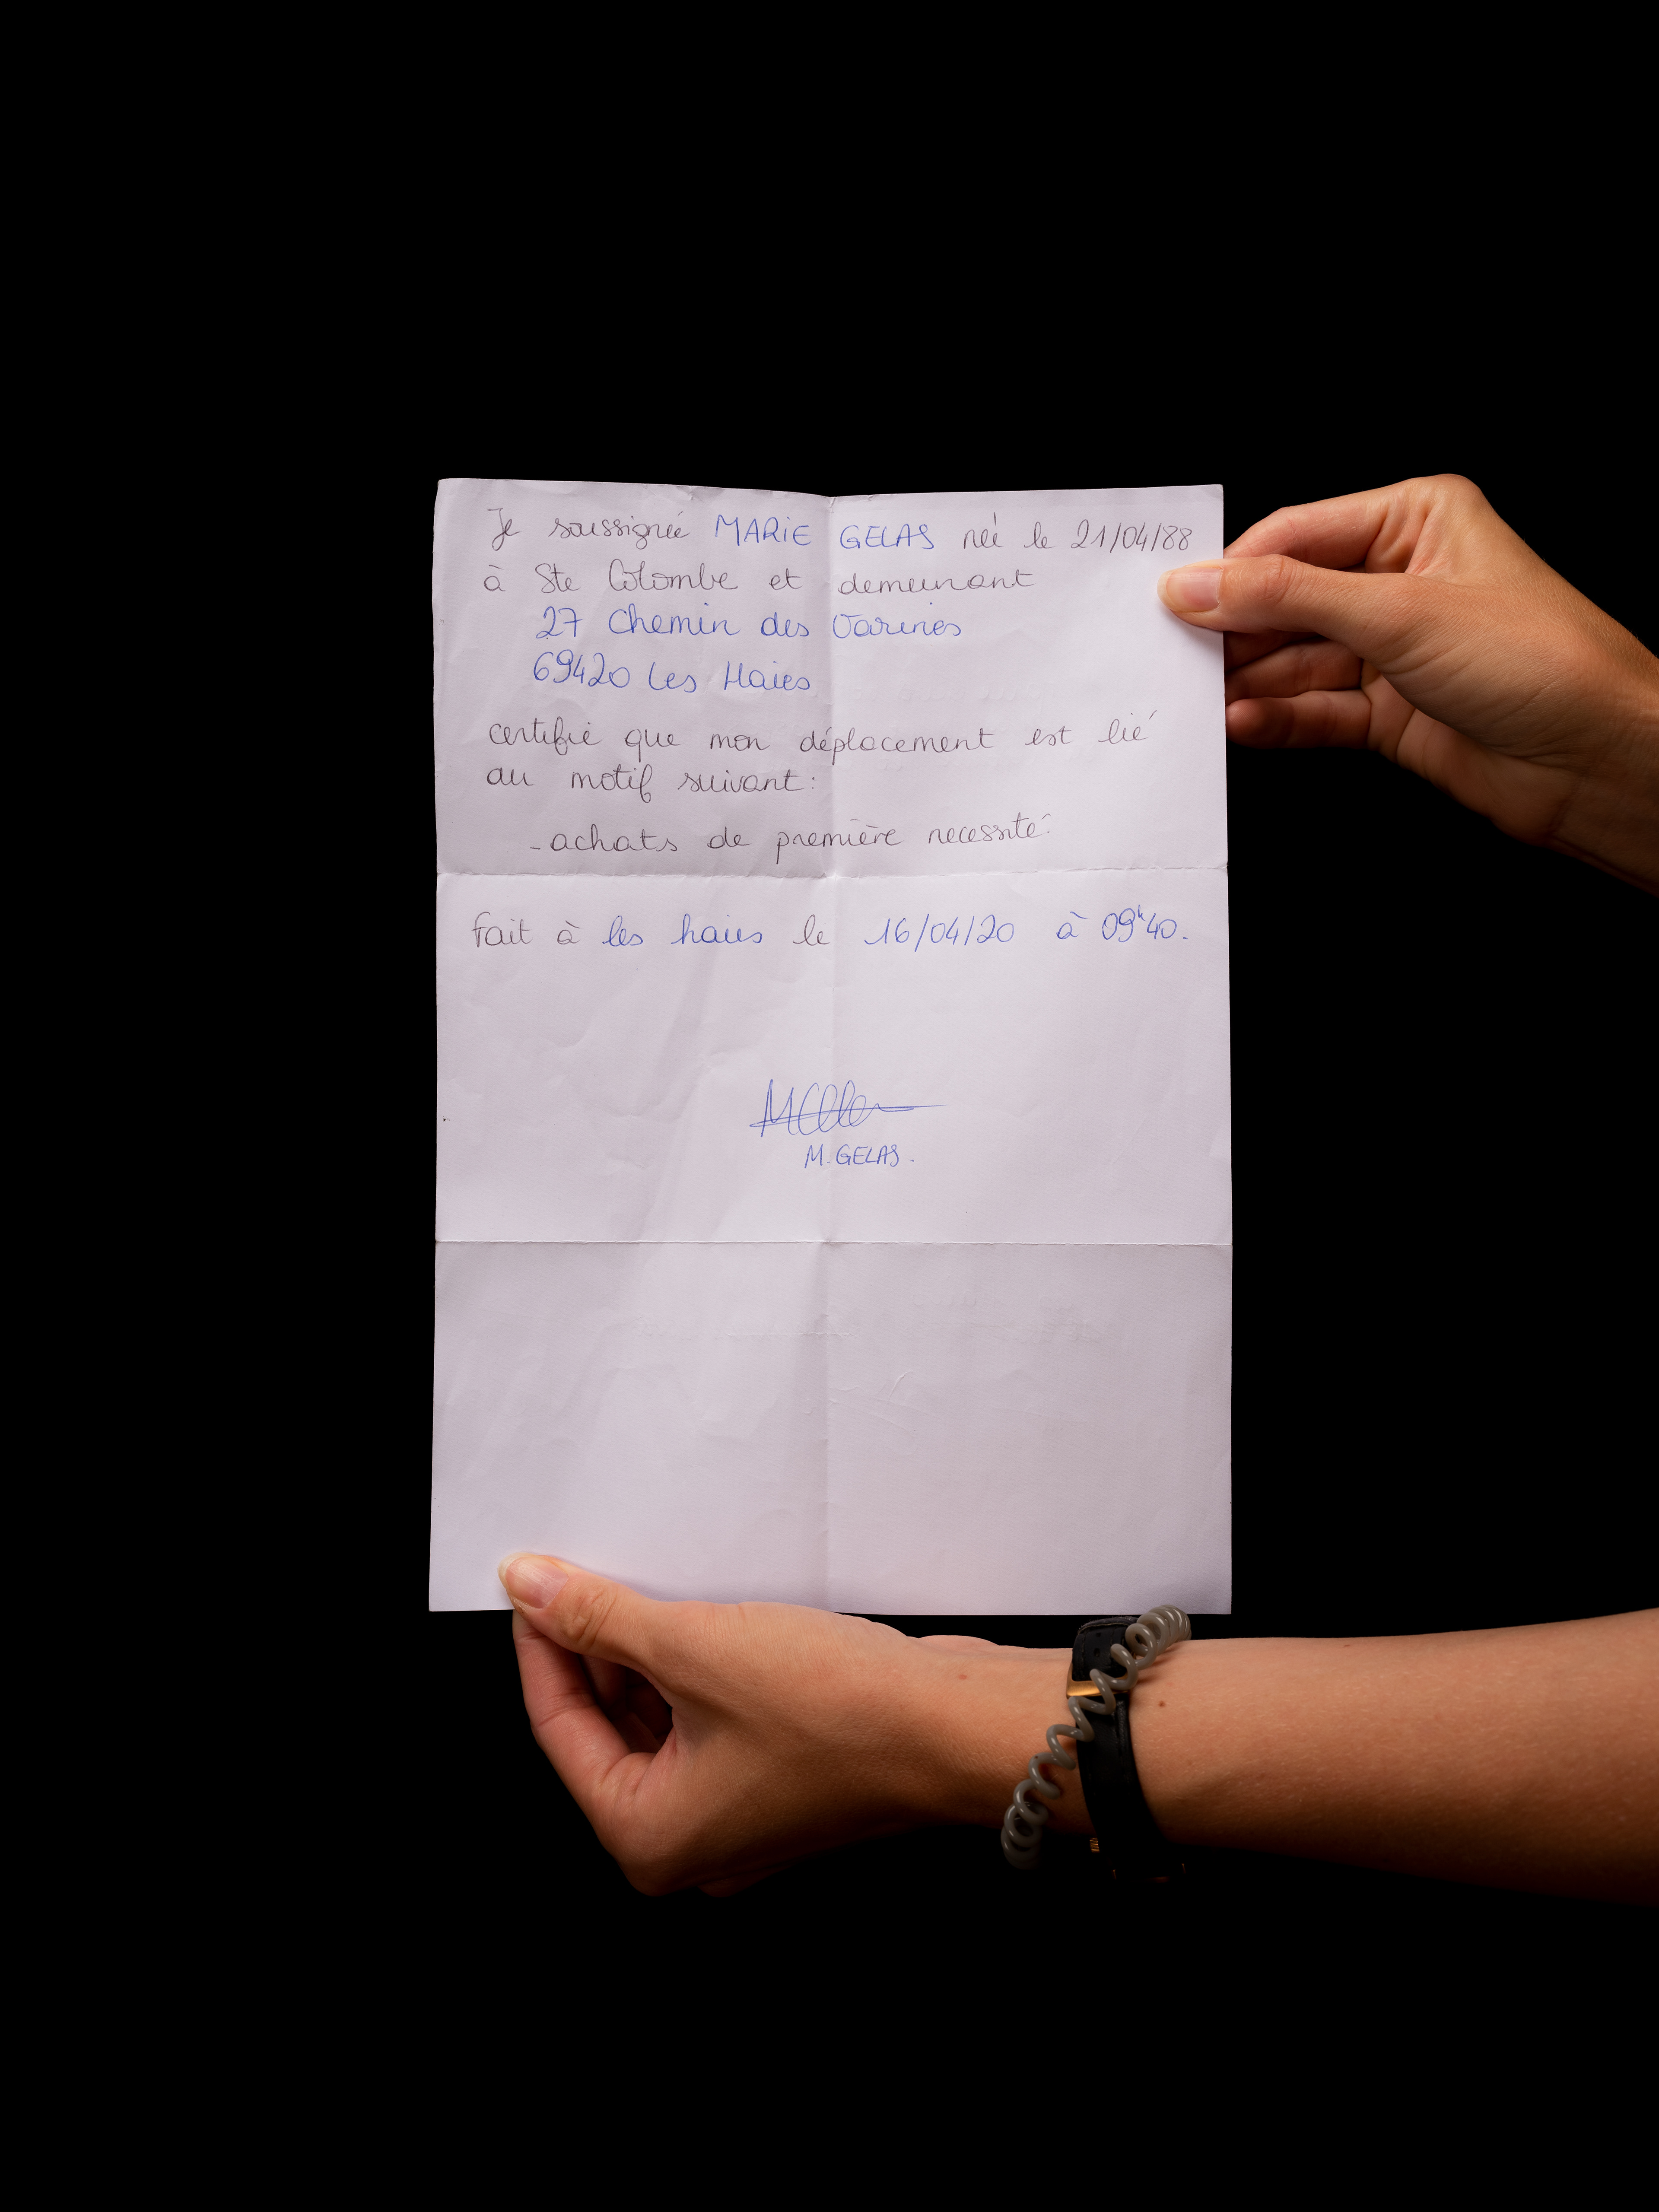 Je soussignée MARIE GELAS née le 21/04/88
à Ste Colombe et demeurant
27 Chemin des Varines
69420 Les Haies
certifie que mon déplacement est lié
au motif suivant:
- achats de première necessité.
fait à les haies le 16/04/20 à 09h40.
M. GELAS.